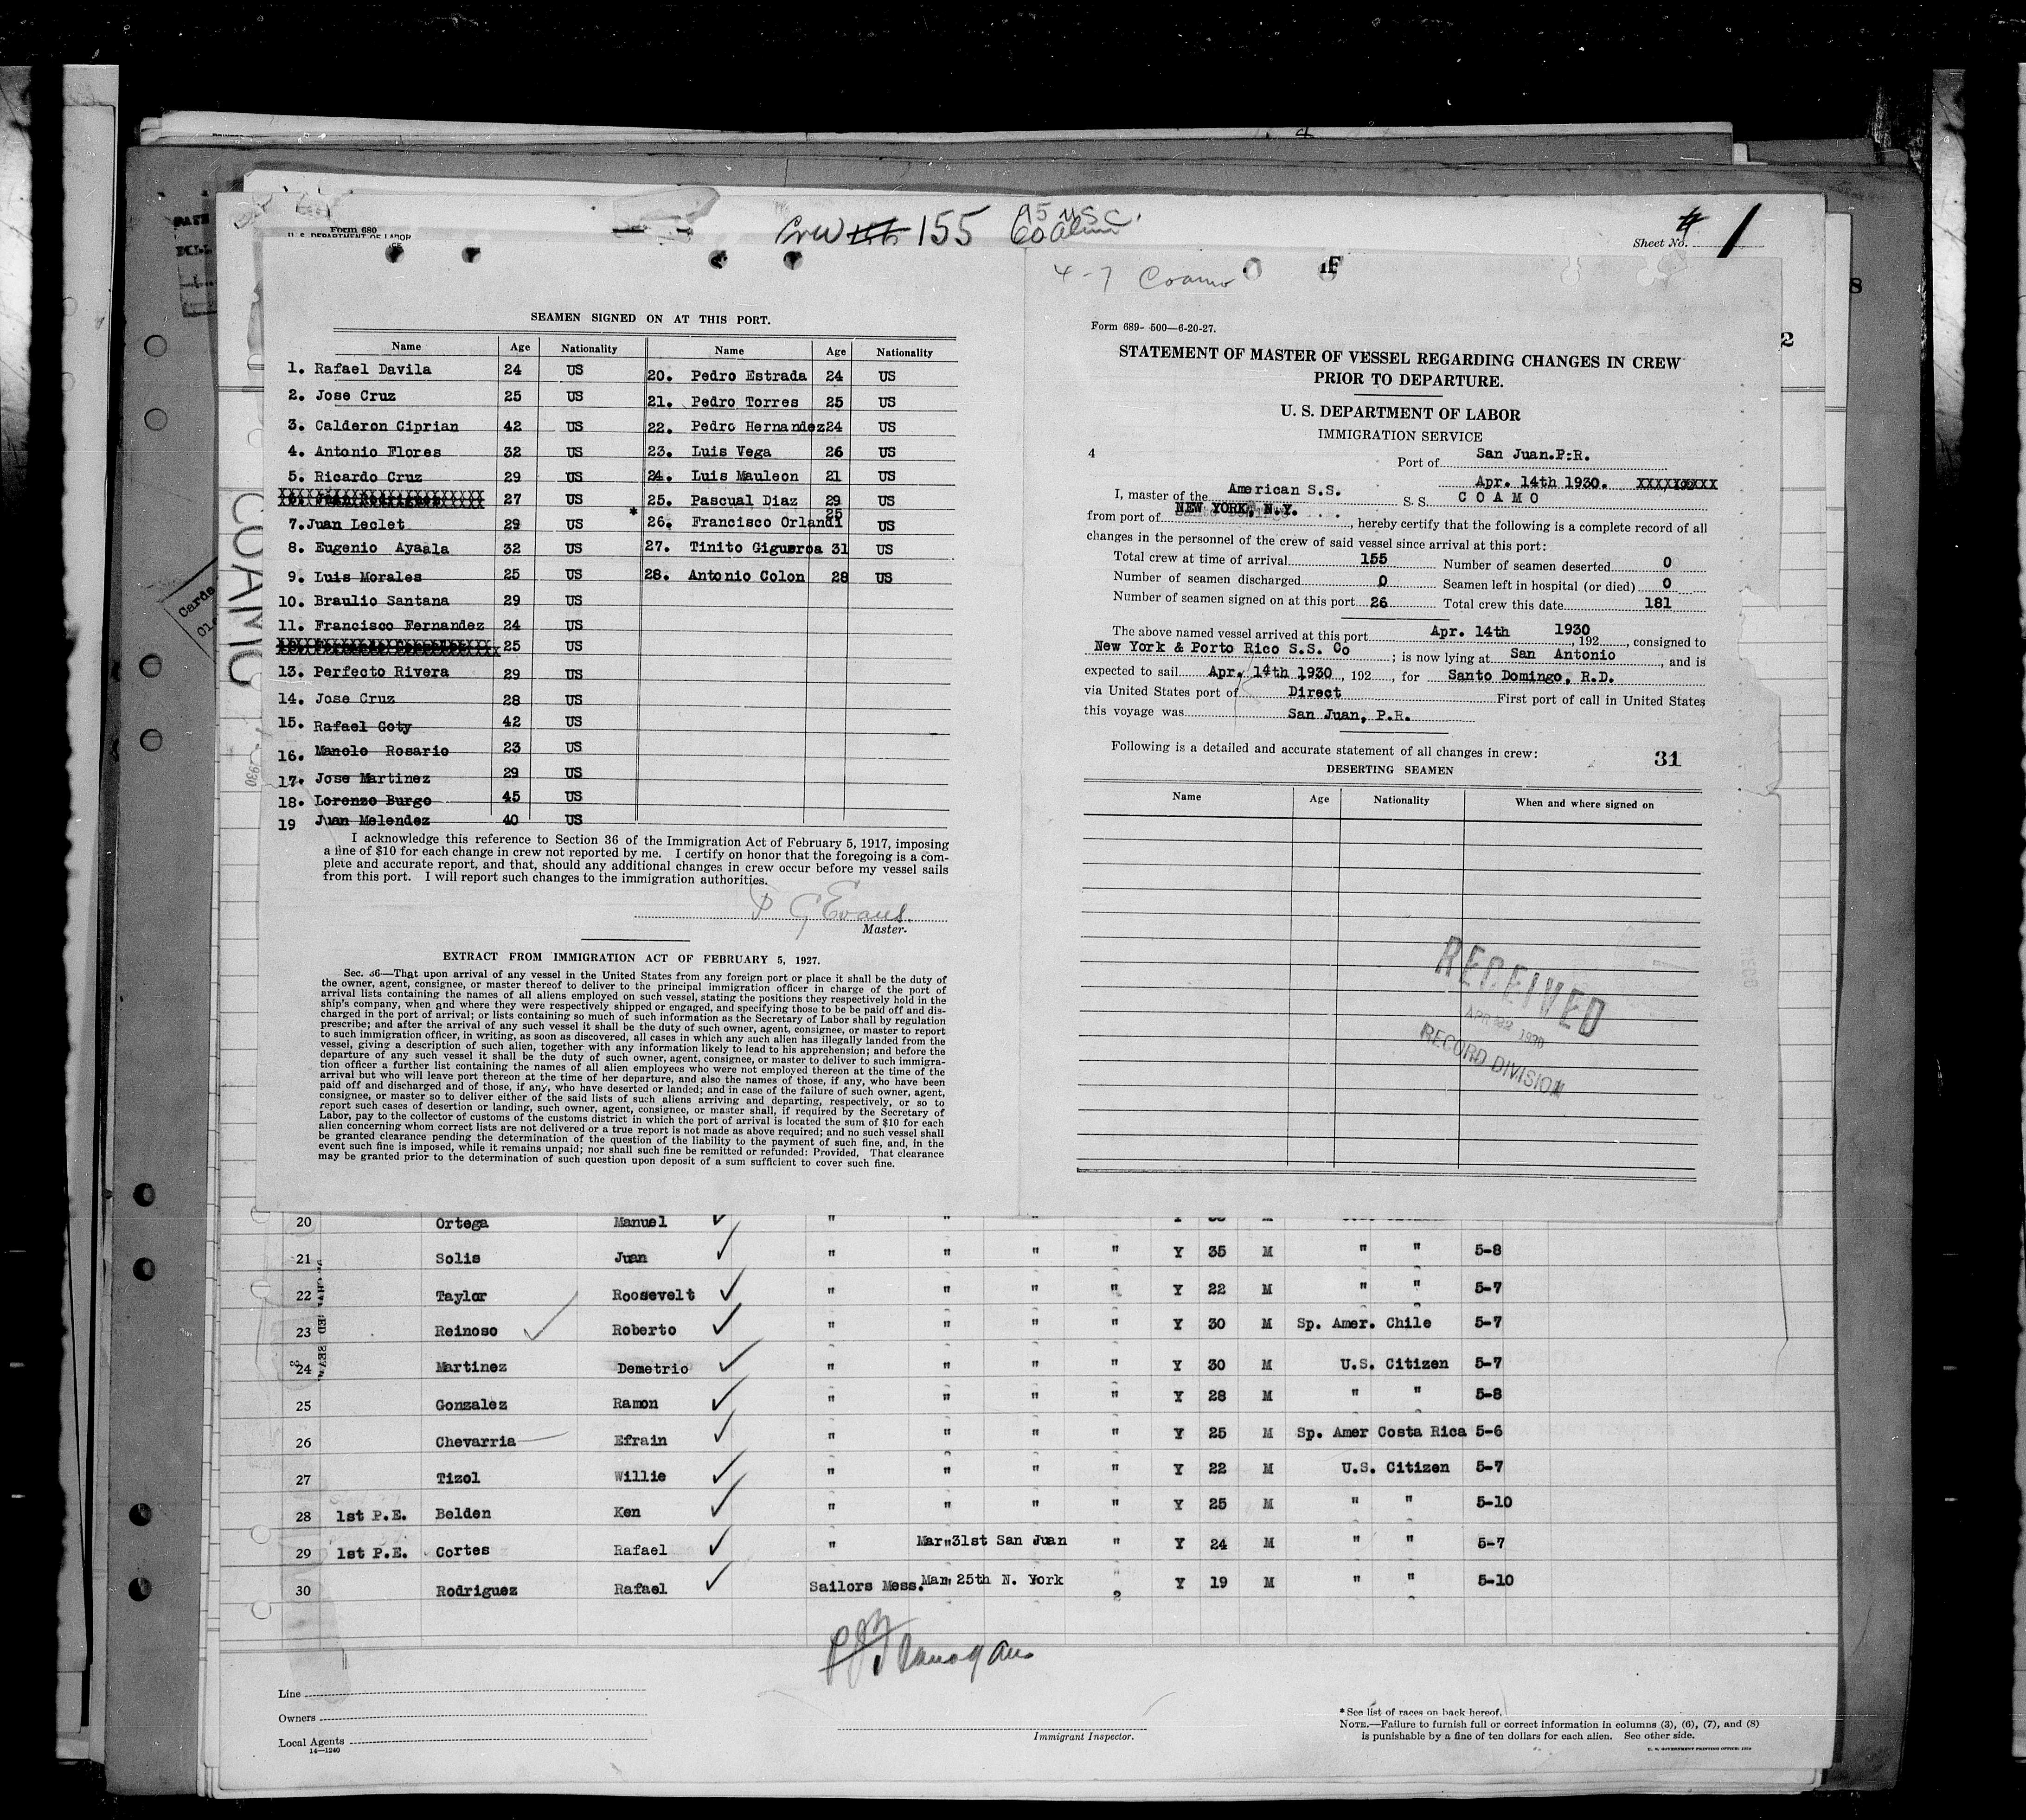 Form 680
U. S. DEPARTMENT OF LABOR
Crew 155
Sheet No. # 1
COAMO
SEAMEN SIGNED ON AT THIS PORT.
Name Age Nationality Name Age Nationality
1. Rafael Davila 24 US 20. Pedro Estrada 24 US
2. Jose Cruz 25 US 21. Pedro Torres 25 US
3. Calderon Ciprian 42 US 22. Pedro Hernandez 24 US
4. Antonio Flores 32 US 23. Luis Vega 26 US
5. Ricardo Cruz 29 US 24. Luis Mauleon 21 US
27 US 25. Pascual Diaz 29 US
7. Juan Leclet 29 US * 26. Francisco Orlandi 25 US
8. Eugenio Ayaala 32 US 27. Tinito Gigueroa 31 US
9. Luis Morales 25 US 28. Antonio Colon 28 US
10. Braulio Santana 29 US
11. Francisco Fernandez 24 US
25 US
13. Perfecto Rivera 29 US
14. Jose Cruz 28 US
15. Rafael Goty 42 US
16. Manolo Rosario 23 US
17. Jose Martinez 29 US
18. Lorenzo Burgo 45 US
19 Juan Melendez 40 US
I acknowledge this reference to Section 36 of the Immigration Act of February 5, 1917, imposing
a fine of $10 for each change in crew not reported by me. I certify on honor that the foregoing is a com-
plete and accurate report, and that, should any additional changes in crew occur before my vessel sails
from this port. I will report such changes to the immigration authorities.
Evans
Master.
EXTRACT FROM IMMIGRATION ACT OF FEBRUARY 5, 1927.
Sec. 36—That upon arrival of any vessel in the United States from any foreign port or place it shall be the duty of
the owner, agent, consignee, or master thereof to deliver to the principal immigration officer in charge of the port of
arrival lists containing the names of all aliens employed on such vessel, stating the positions they respectively hold in the
ship's company, when and where they were respectively shipped or engaged, and specifying those to be be paid off and dis-
charged in the port of arrival; or lists containing so much of such information as the Secretary of Labor shall by regulation
prescribe; and after the arrival of any such vessel it shall be the duty of such owner, agent, consignee, or master to report
to such immigration officer, in writing, as soon as discovered, all cases in which any such alien has illegally landed from the
vessel, giving a description of such alien, together with any information likely to lead to his apprehension; and before the
departure of any such vessel it shall be the duty of such owner, agent, consignee, or master to deliver to such immigra-
tion officer a further list containing the names of all alien employees who were not employed thereon at the time of the
arrival but who will leave port thereon at the time of her departure, and also the names of those, if any, who have been
paid off and discharged and of those, if any, who have deserted or landed; and in case of the failure of such owner, agent,
consignee, or master so to deliver either of the said lists of such aliens arriving and departing, respectively, or so to
report such cases of desertion or landing, such owner, agent, consignee, or master shall, if required by the Secretary of
Labor, pay to the collector of customs of the customs district in which the port of arrival is located the sum of $10 for each
alien concerning whom correct lists are not delivered or a true report is not made as above required; and no such vessel shall
be granted clearance pending the determination of the question of the liability to the payment of such fine, and, in the
event such fine is imposed, while it remains unpaid; nor shall such fine be remitted or refunded: Provided, That clearance
may be granted prior to the determination of such question upon deposit of a sum sufficient to cover such fine.
4-7 Coamo
Form 689- 500—6-20-27.
STATEMENT OF MASTER OF VESSEL REGARDING CHANGES IN CREW
PRIOR TO DEPARTURE.
U. S. DEPARTMENT OF LABOR
IMMIGRATION SERVICE
4
Port of San Juan.P:R.
Apr. 14th 1930.
I, master of the American S.S. S. S. COAMO
from port of NEW YORK, N.Y. , hereby certify that the following is a complete record of all
changes in the personnel of the crew of said vessel since arrival at this port:
Total crew at time of arrival 155 Number of seamen deserted 0
Number of seamen discharged 0 Seamen left in hospital (or died) 0
Number of seamen signed on at this port 26 Total crew this date 181
The above named vessel arrived at this port Apr. 14th 1930 192 , consigned to
New York & Porto Rico S.S. Co ; is now lying at San Antonio , and is
expected to sail Apr. 14th 1930 , 192 , for Santo Domingo, R.D.
via United States port of Direct First port of call in United States
this voyage was San Juan, P.R.
Following is a detailed and accurate statement of all changes in crew: 31
DESERTING SEAMEN
Name Age Nationality When and where signed on
RECEIVED
APR 22 1930
RECORD DIVISION
20 Ortega Manuel " " "
21 Solis Juan " " " " Y 35 M " " 5-8
22 Taylor Roosevelt " " " " Y 22 M " " 5-7
23 Reinoso Roberto " " " " Y 30 M Sp. Amer. Chile 5-7
24 Martinez Demetrio " " " " Y 30 M U.S. Citizen 5-7
25 Gonzalez Ramon " " " " Y 28 M " " 5-8
26 Chevarria Efrain " " " " Y 25 M Sp. Amer Costa Rica 5-6
27 Tizol Willie " " " " Y 22 M U.S. Citizen 5-7
28 1st P.E. Belden Ken " " " " Y 25 M " " 5-10
29 1st P.E. Cortes Rafael " Mar 31st San Juan " Y 24 M " " 5-7
30 Rodriguez Rafael Sailors Mess. Mar 25th N. York " Y 19 M " " 5-10
2
Line
Owners
Local Agents
14—1240
Immigrant Inspector.
* See list of races on back hereof.
NOTE.—Failure to furnish full or correct information in columns (3), (6), (7), and (8)
is punishable by a fine of ten dollars for each alien. See other side.